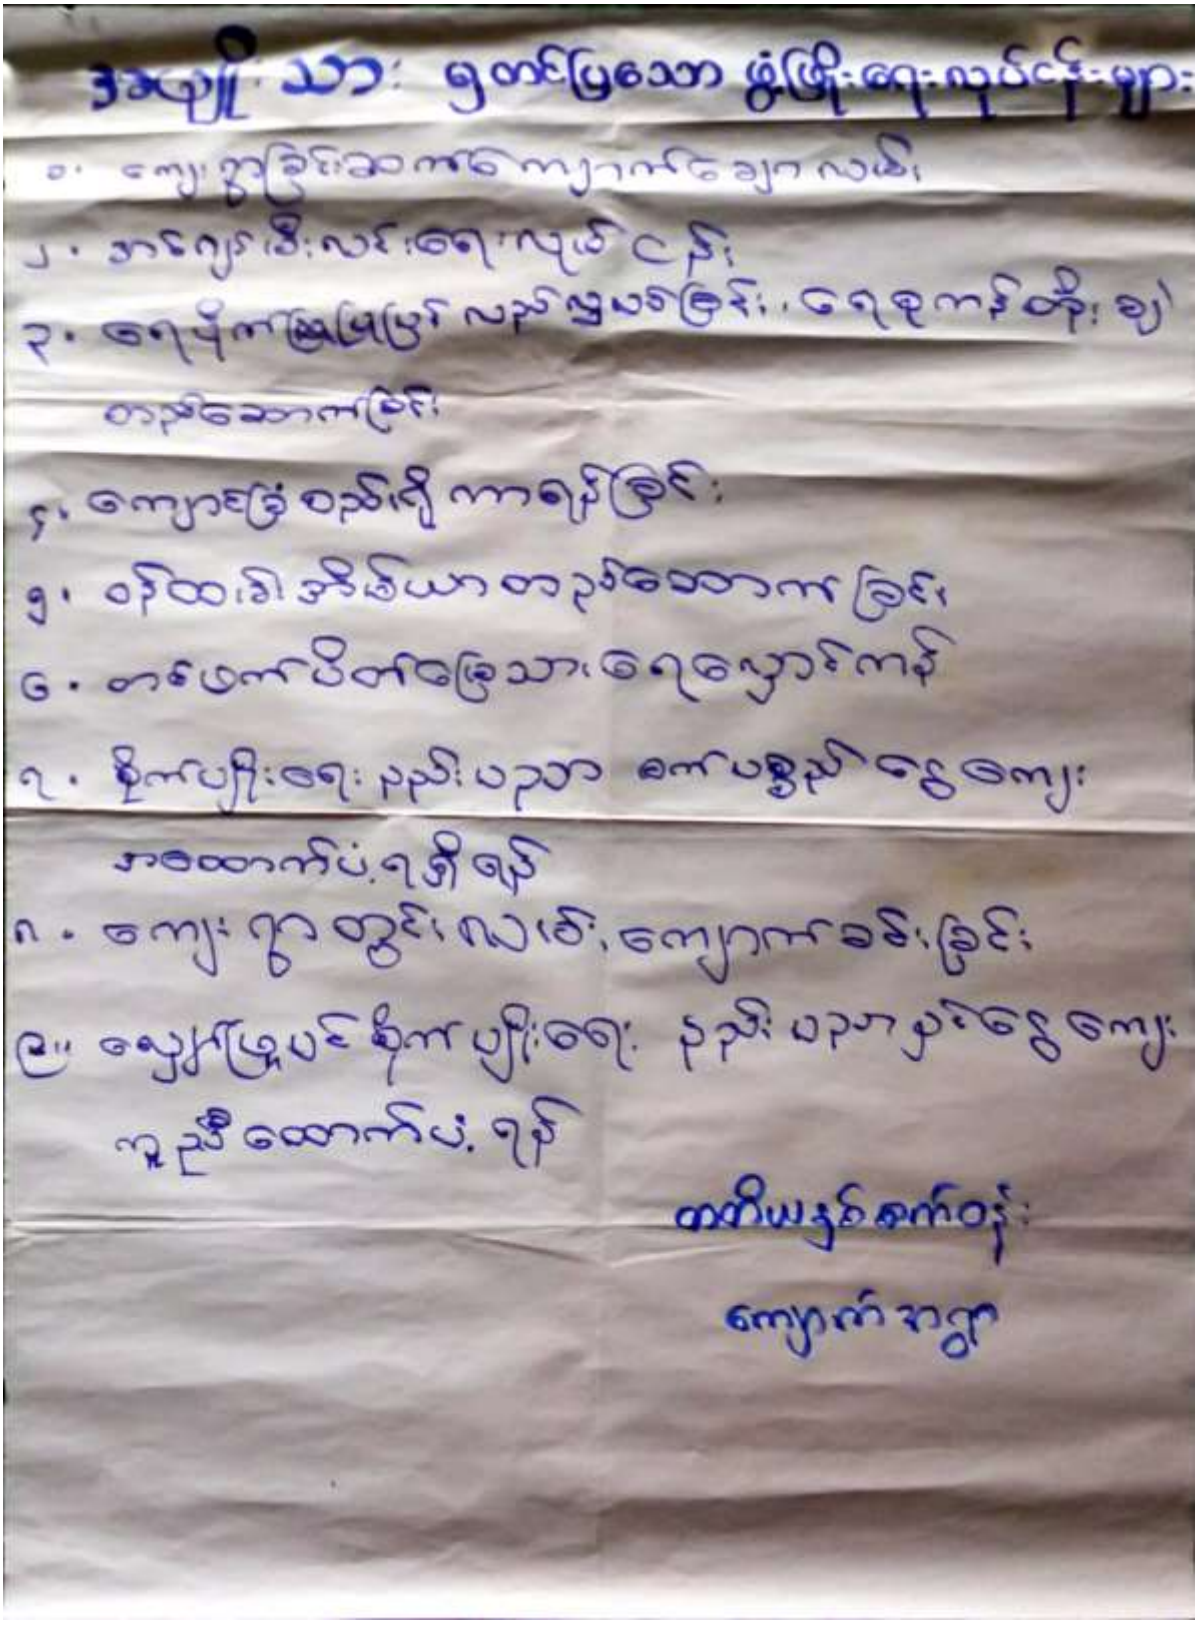 အမျိုးသား ရှတင်ပြသော ဖွံ့ဖြိုးရေးလုပ်ငန်းများ
၁. ကျေးရွာခြင်းဆက်ကျောက်ချောလမ်း
၂. အစ်ဂျစ်မီးလင်းရေးလုပ်ငန်း
၃. ရေပိုက် ပြုပြင် လည်လှယ်ခြင်း၊ ရေစုကန်တိုးချဲ့
တည်ဆောက်ခြင်း
၄. ကျောင်းခြံစည်းရိုးကာရန်ခြင်း
၅. ဝန်ထမ်းအိမ်ယာတည်ဆောက်ခြင်း
၆. တစ်ဖက်ပိတ်မြေသားရေလှောင်ကန်
၇. စိုက်ပျိုးရေးနည်းပညာ စက်ပစ္စည်းငွေကျေး
အထောက်ပံ့ရရှိရန်
၈. ကျေးရွာတွင်းလမ်းကျောက်ခင်းခြင်း
၉။ လျှော်ဖြူပင်စိုက်ပျိုးရေး နည်းပညာနှင့်ငွေကျေး
ကူညီထောက်ပံ့ရန်
တတိယနှစ်စက်ဝန်း
ကျောက်အရွာ